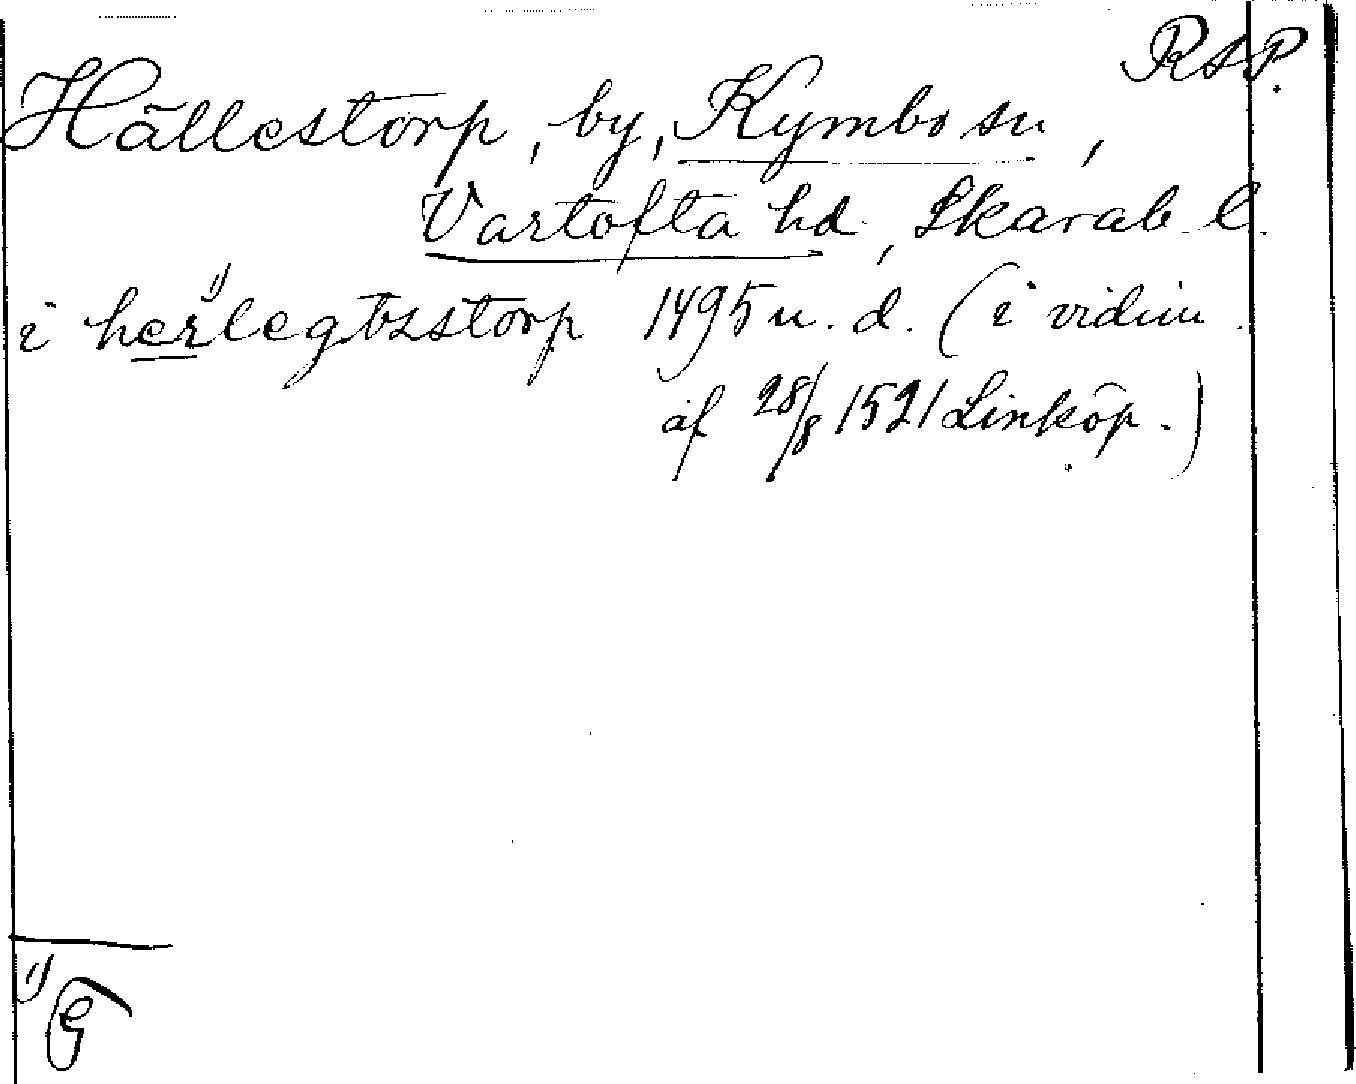 RAP.
Hällestorp, by, Kymbo sn,
Vartofta hd., Skarab. l.
i herlegtzstorp 1495 u. d. (i vidim.
af 28/8 1521 Linköp.)
1)